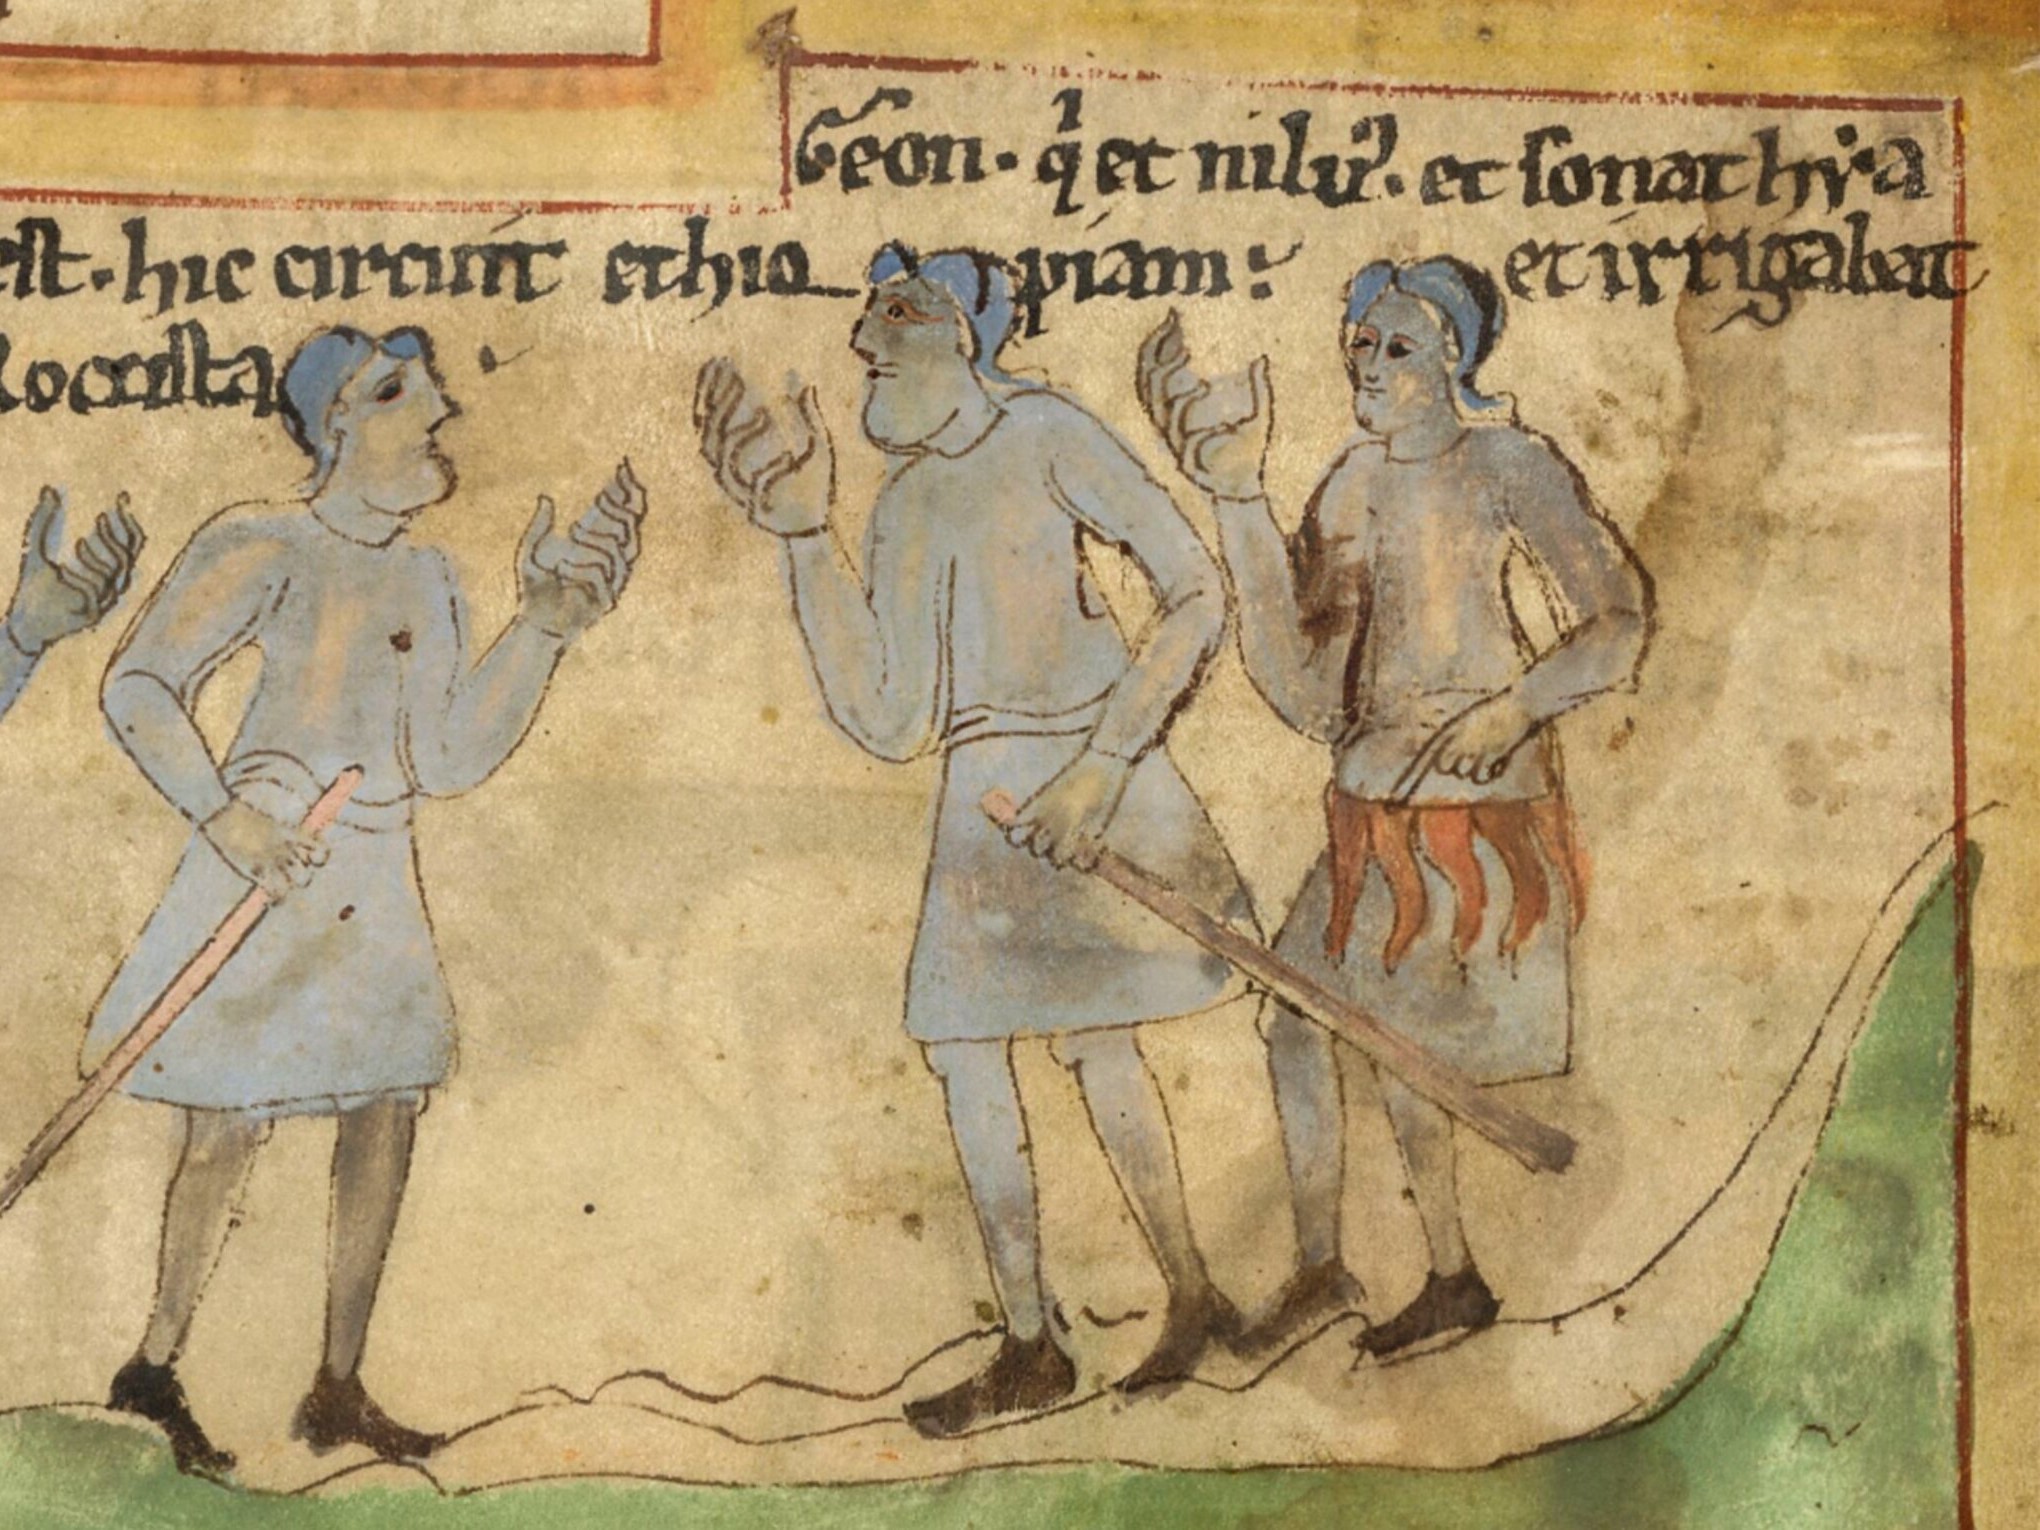 Geon· qi et nilus. et sonat hyra
est· hic circuit ethio piam: et irrigabat
locusta